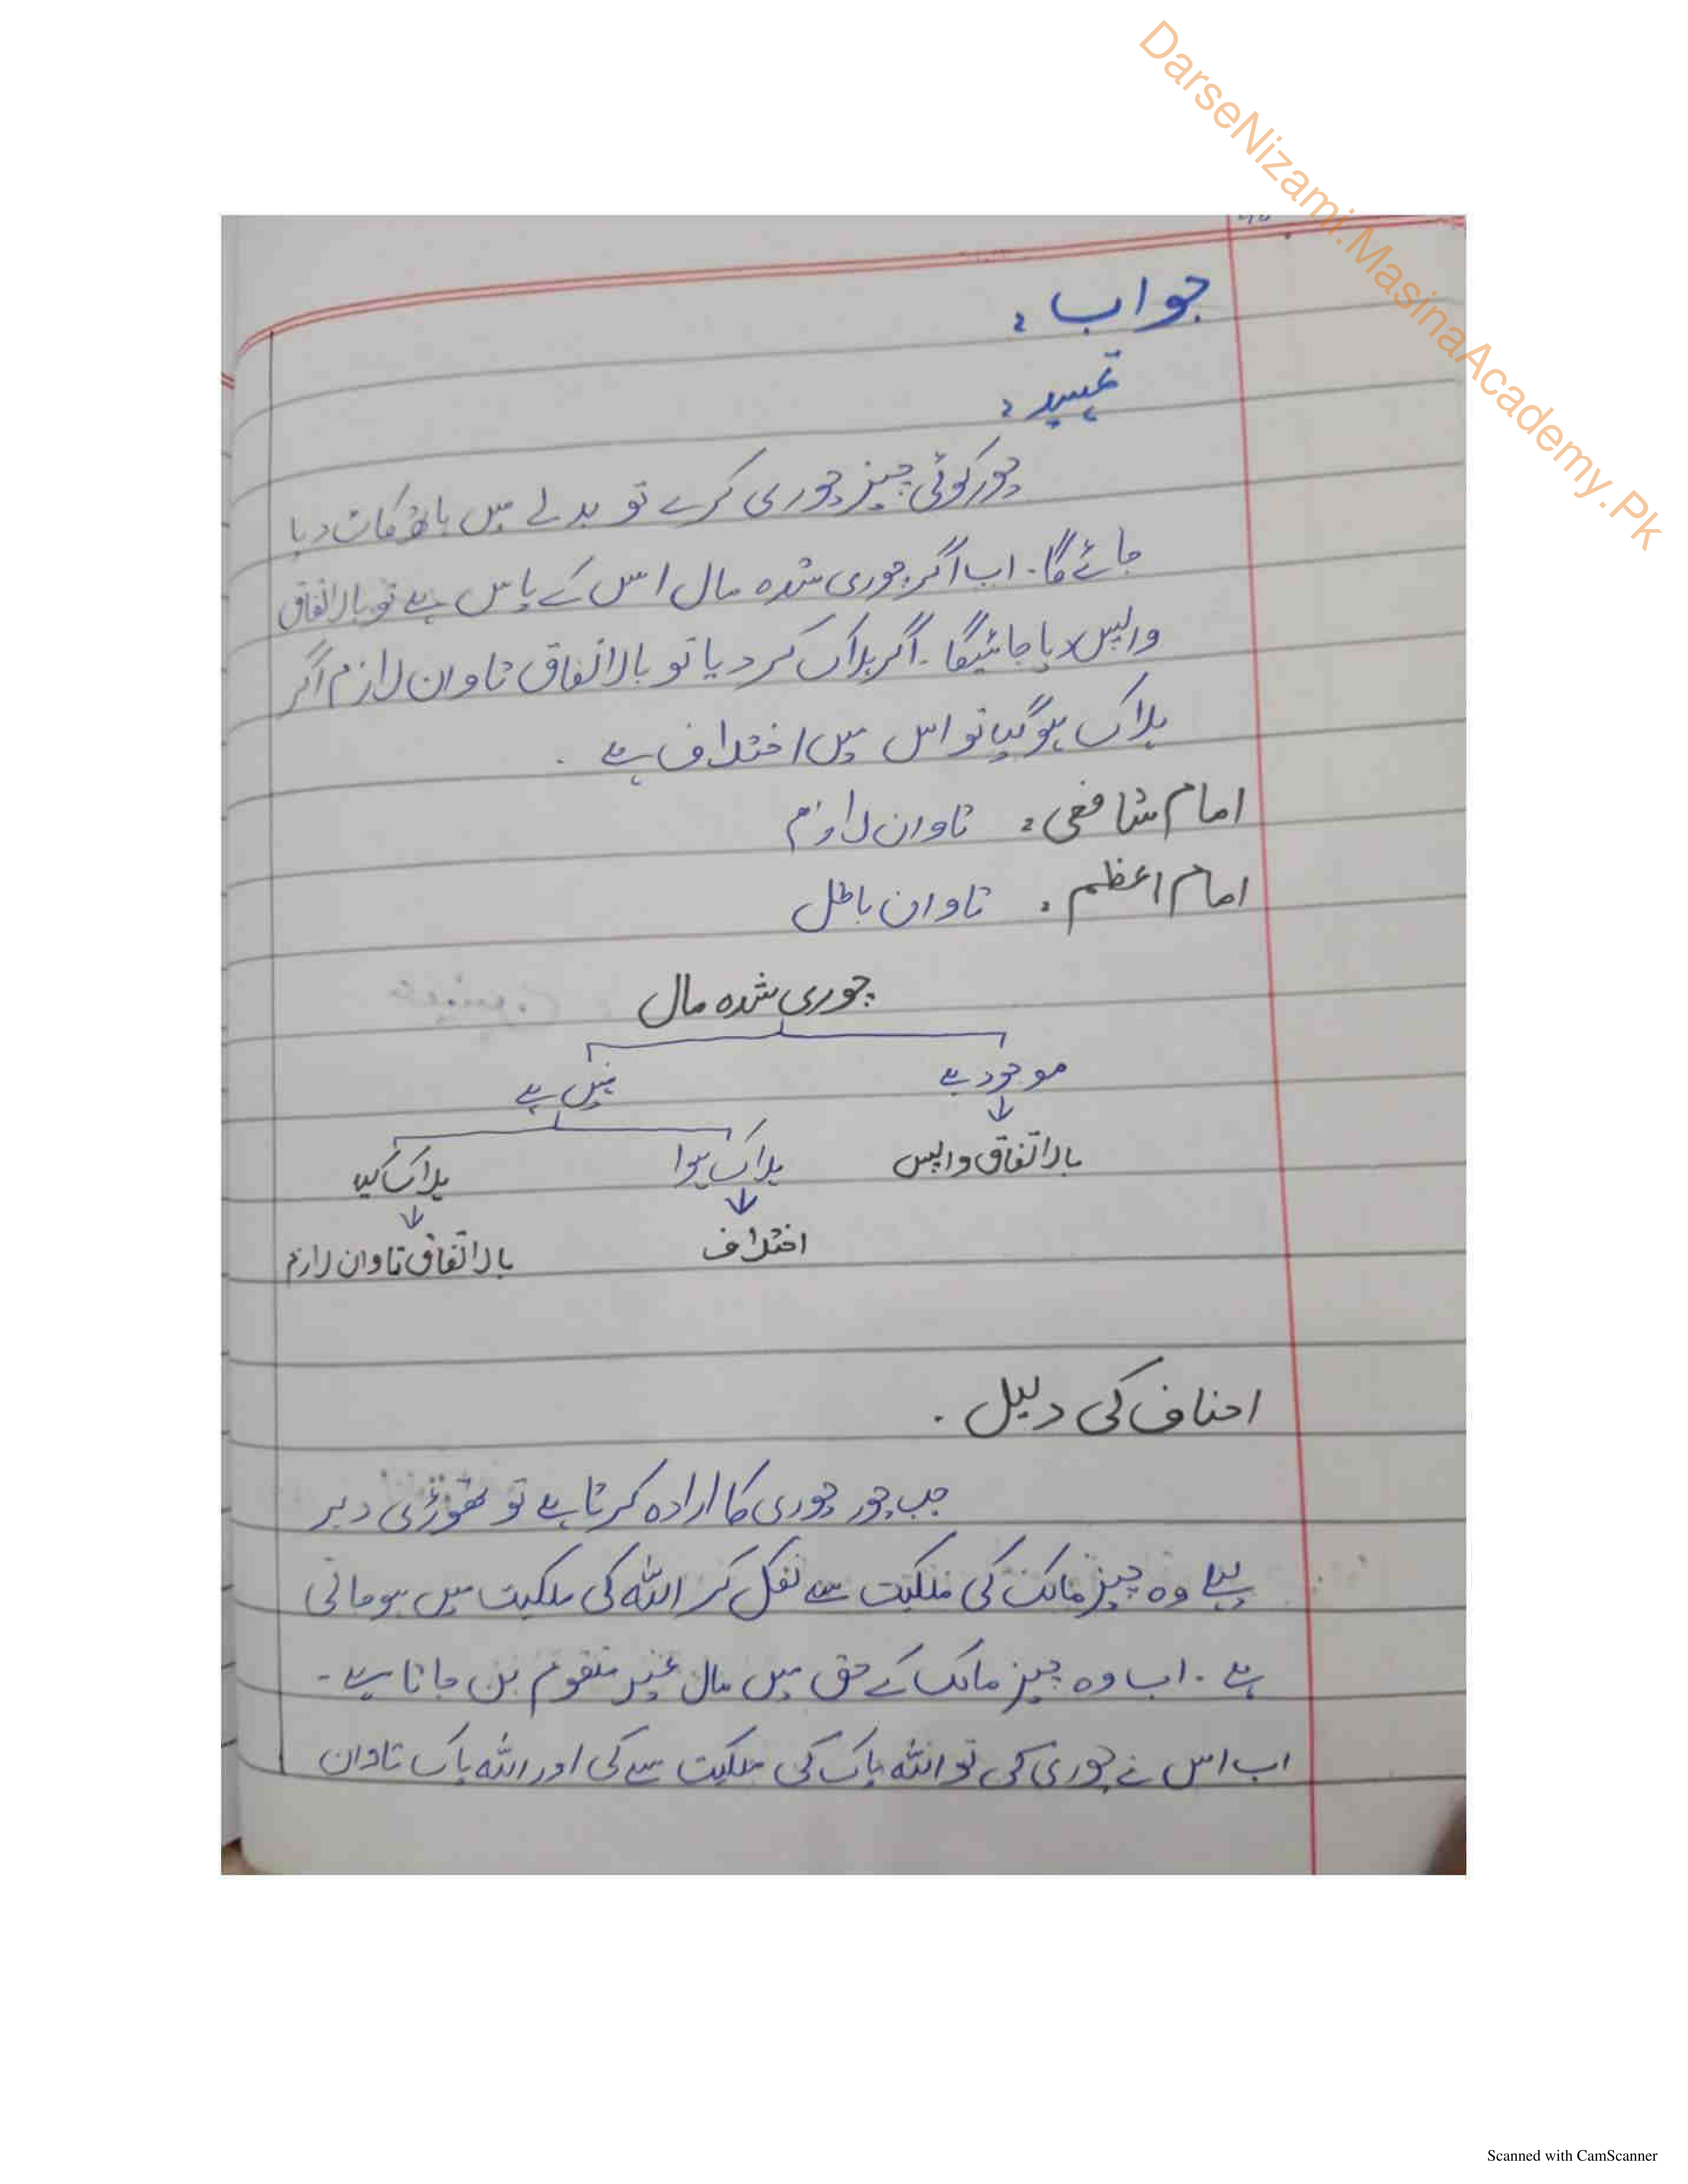 DarseNizami.MasinaAcademy.Pk
جواب :
تمہید :
چور کوئی چیز چوری کرے تو بدلے میں ہاتھ کاٹ دیا
جائے گا۔ اب اگر چوری شدہ مال اس کے پاس ہے تو بالاتفاق
واپس دیا جائیگا ۔ اگر ہلاک کر دیا تو بالاتفاق تاوان لازم اگر
ہلاک ہوگیا تو اس میں اختلاف ہے ۔
امام شافعی : تاوان لازم
امام اعظم : تاوان باطل
چوری شدہ مال
موجود ہے نہیں ہے
بالاتفاق واپس ہلاک ہوا ہلاک کیا
اختلاف بالاتفاق تاوان لازم
احناف کی دلیل ۔
جب چور چوری کا ارادہ کرتا ہے تو تھوڑی دیر
پہلے وہ چیز مالک کی ملکیت سے نکل کر اللہ کی ملکیت میں ہو جاتی
ہے ۔ اب وہ چیز مالک کے حق میں مال غیر متقوم بن جاتا ہے ۔
اب اس نے چوری کی تو اللہ پاک کی ملکیت سے کی اور اللہ پاک تاوان
Scanned with CamScanner